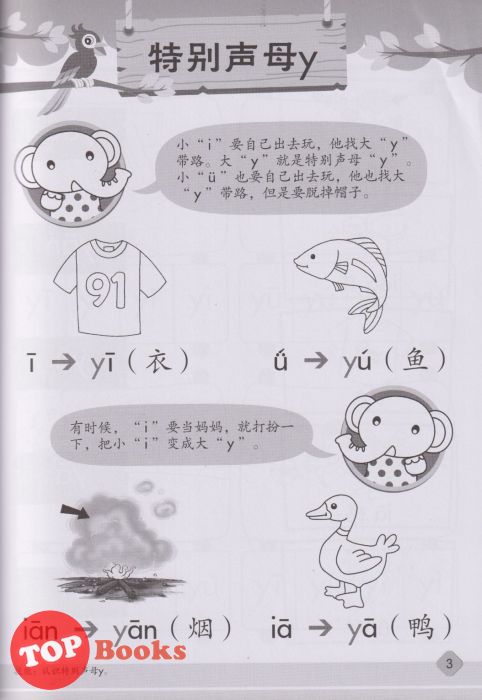 特别声母y
小“i”要自己出去玩，他找大“y”
带路。大“y”就是特别声母“y”。
小“ü”也要自己出去玩，他也找大
“y”带路，但是要脱掉帽子。
91
ī → yī（衣） ǘ → yú（鱼）
有时候，“i”要当妈妈，就打扮一
下，把小“i”变成大“y”。
iān → yān（烟） iā → yā（鸭）
TOP Books
认识特别声母y。
3